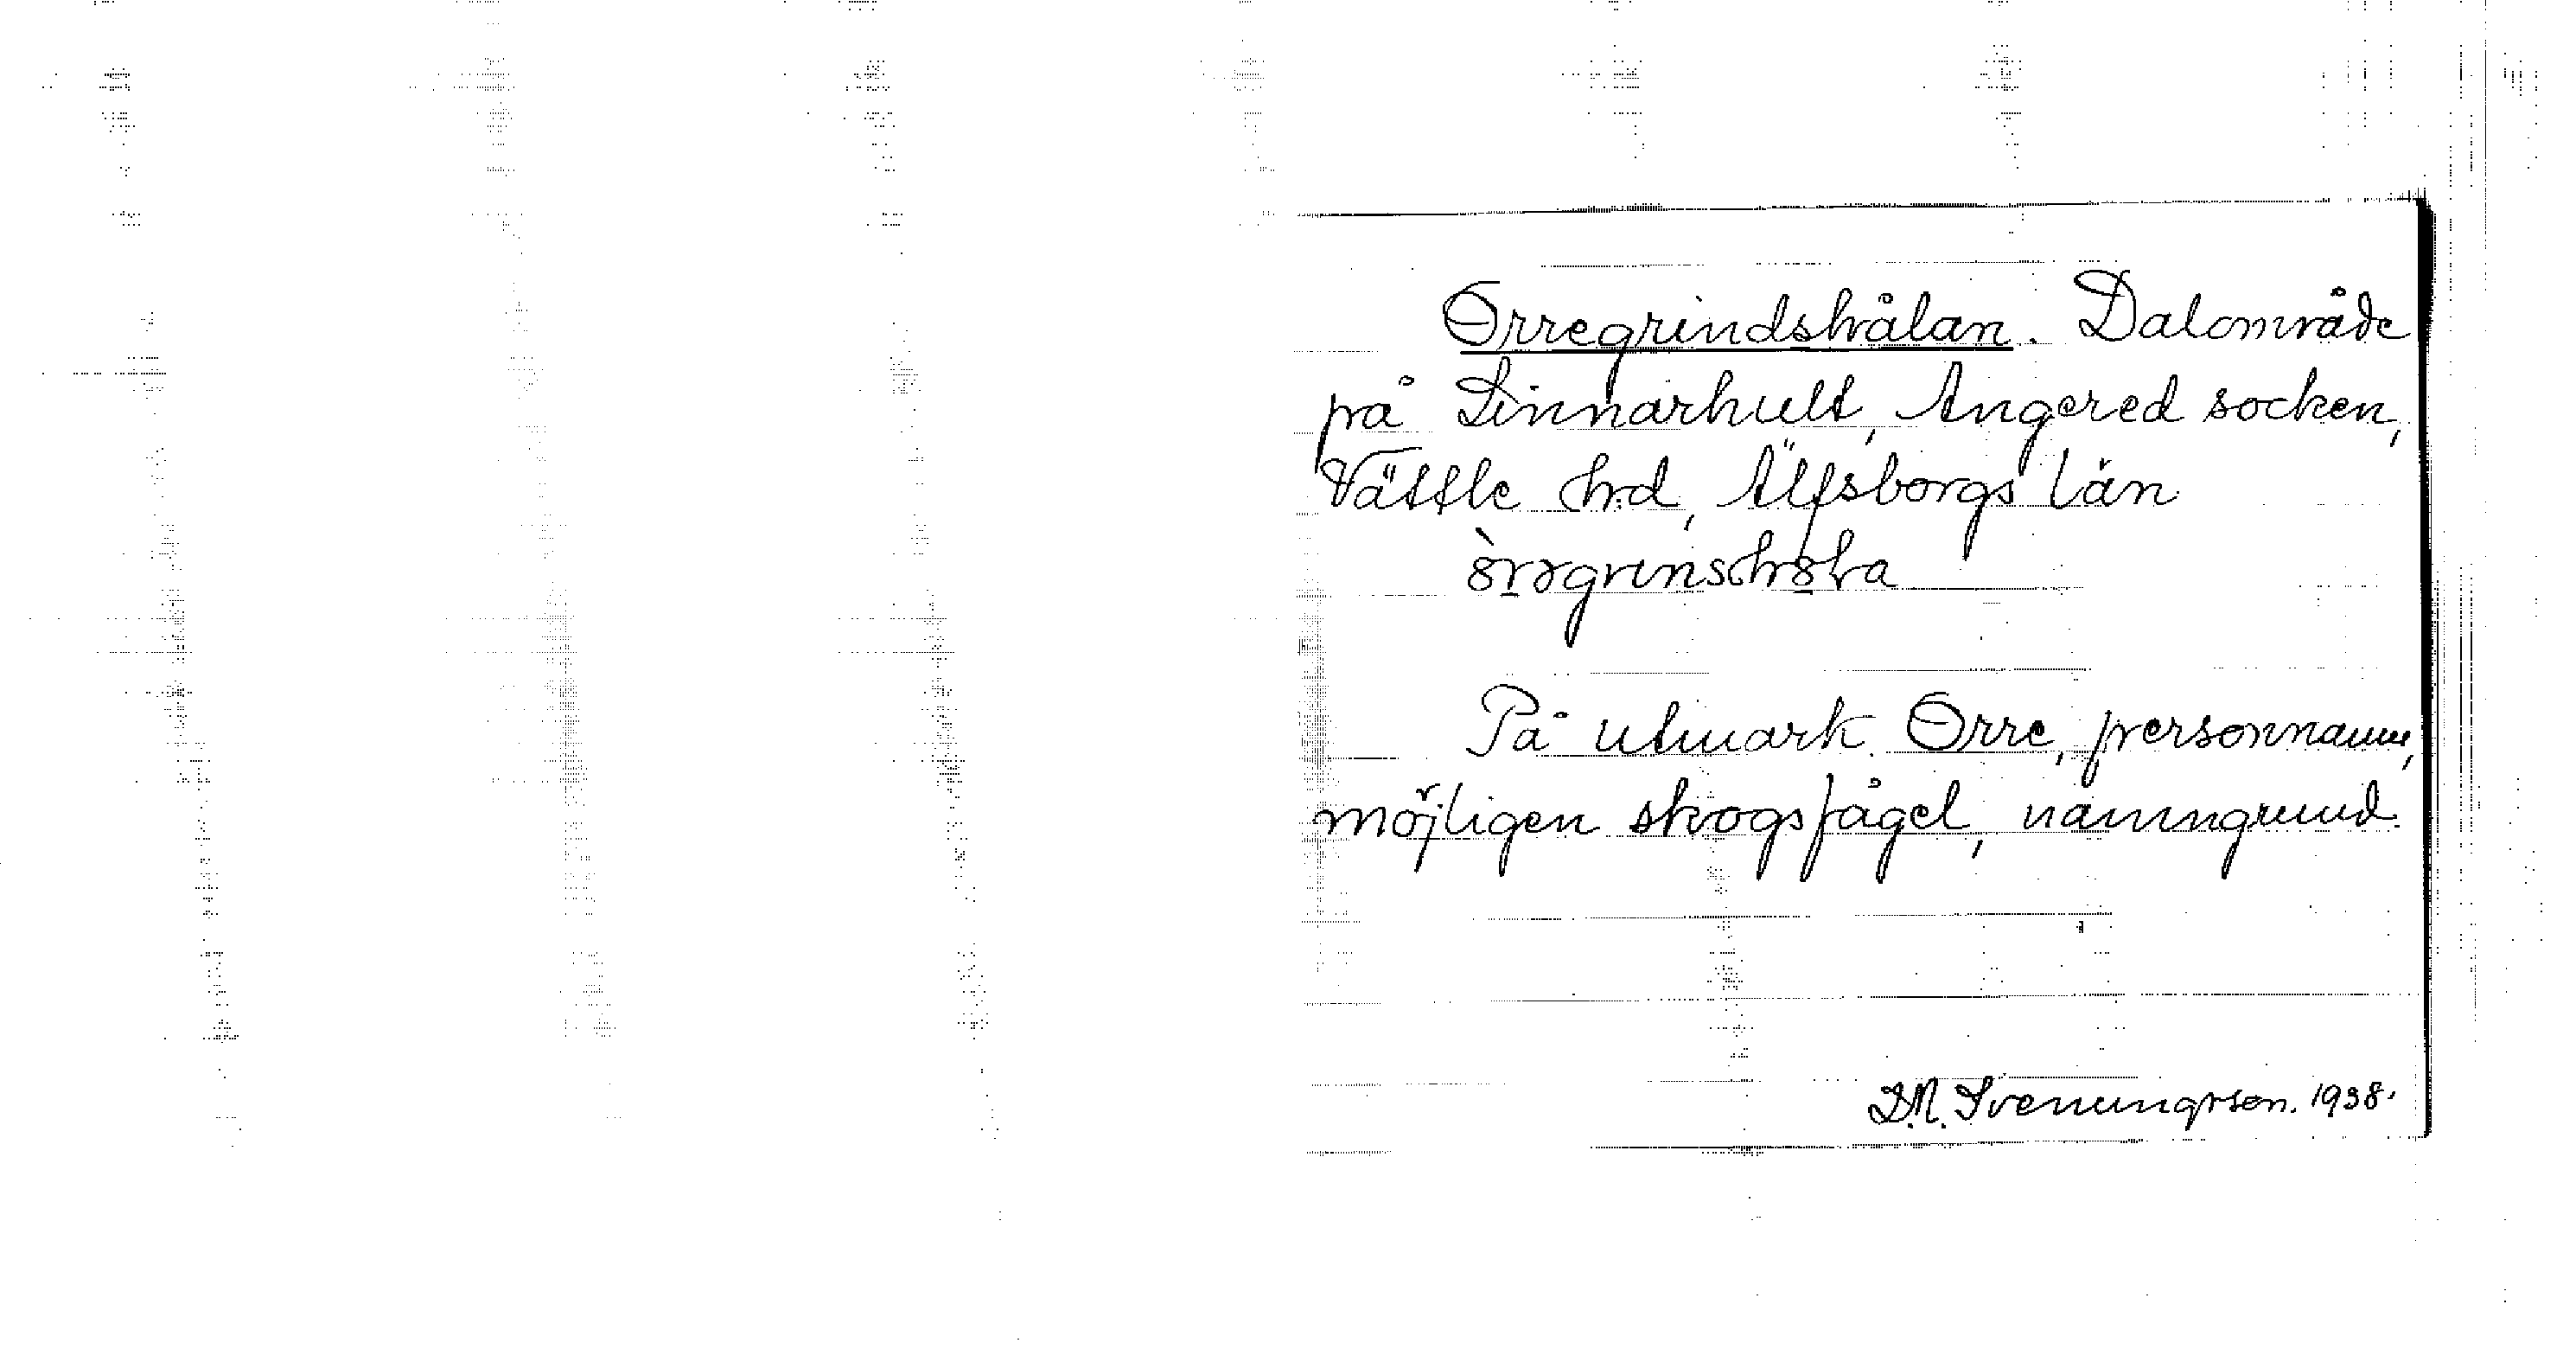 Orregrindshålan. Dalområde
på Linnarhult, Angered socken,
Vättle hd, Älfsborgs län
På utmark. Orre, personnamn,
möjligen skogsfågel, namngrund.
D.N. Svenungsson. 1938.